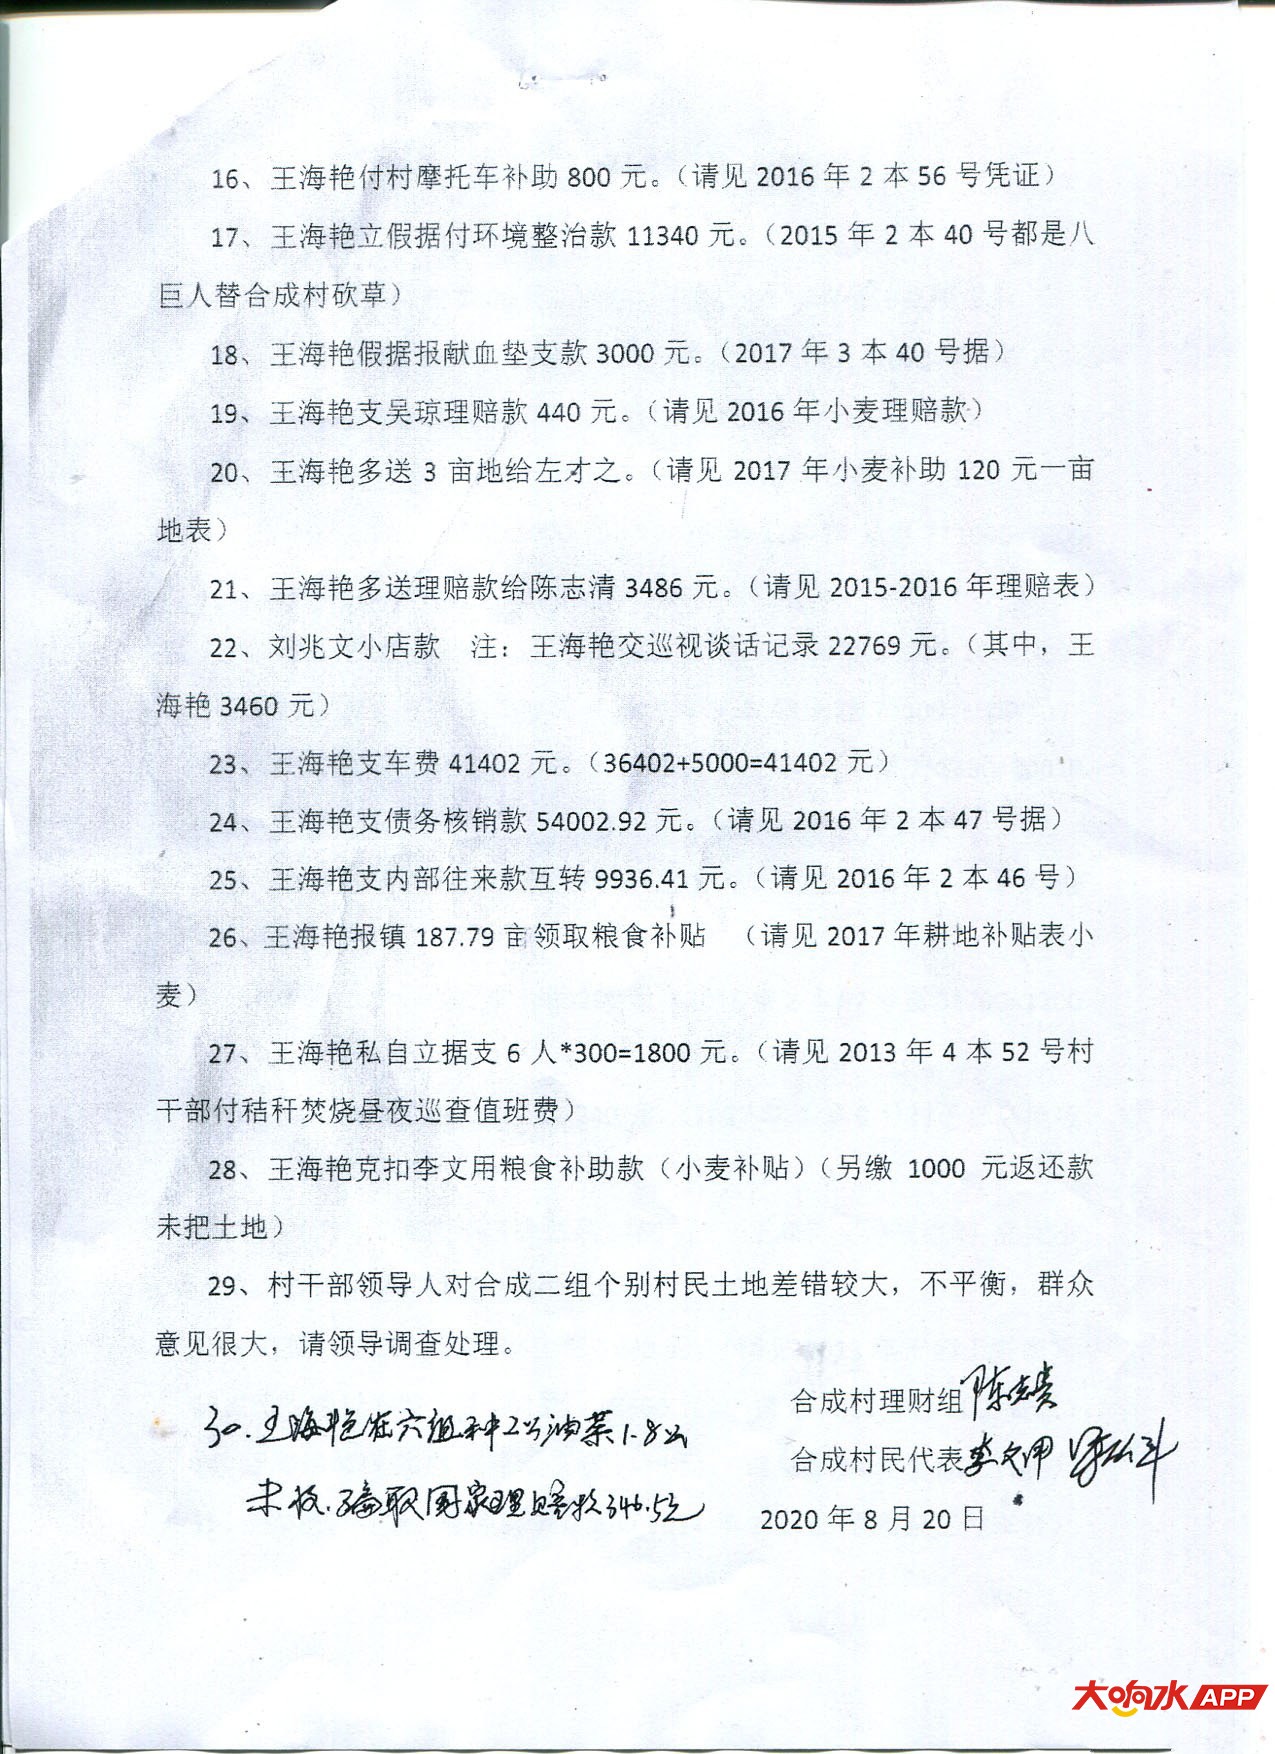 16、王海艳付村摩托车补助 800 元。（请见 2016 年 2 本 56 号凭证）
17、王海艳立假据付环境整治款 11340 元。（2015 年 2 本 40 号都是八
巨人替合成村砍草）
18、王海艳假据报献血垫支款 3000 元。（2017 年 3 本 40 号据）
19、王海艳支吴琼理赔款 440 元。（请见 2016 年小麦理赔款）
20、王海艳多送 3 亩地给左才之。（请见 2017 年小麦补助 120 元一亩
地表）
21、王海艳多送理赔款给陈志清 3486 元。（请见 2015-2016 年理赔表）
22、刘兆文小店款　注：王海艳交巡视谈话记录 22769 元。（其中，王
海艳 3460 元）
23、王海艳支车费 41402 元。（36402+5000=41402 元）
24、王海艳支债务核销款 54002.92 元。（请见 2016 年 2 本 47 号据）
25、王海艳支内部往来款互转 9936.41 元。（请见 2016 年 2 本 46 号）
26、王海艳报镇 187.79 亩领取粮食补贴　（请见 2017 年耕地补贴表小
麦）
27、王海艳私自立据支 6 人*300=1800 元。（请见 2013 年 4 本 52 号村
干部付秸秆焚烧昼夜巡查值班费）
28、王海艳克扣李文用粮食补助款（小麦补贴）（另缴 1000 元返还款
未把土地）
29、村干部领导人对合成二组个别村民土地差错较大，不平衡，群众
意见很大，请领导调查处理。
合成村理财组
30.王海艳在六组种
油菜1.8
合成村民代表
骗取国家理赔款346.5元
2020 年 8 月 20 日
大响水APP